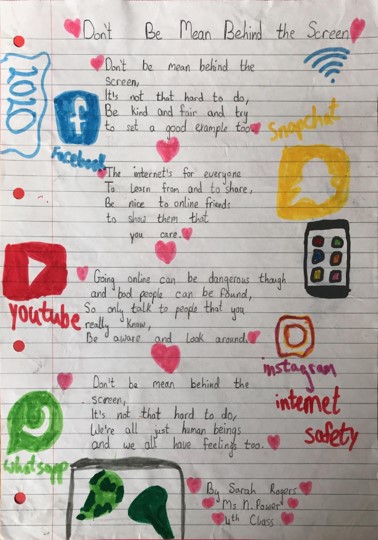 Don't Be Mean Behind the Screen
Don't be mean behind the
screen,
It's not that hard to do,
Be kind and fair and try
to set a good example too
2020
Facebook
Snapchat
The internet's for everyone
To Learn from and to share,
Be nice to online friends
to show them that
you care.
Going online can be dangerous though
and bad people can be found,
So only talk to people that you
really know,
Be aware and Look around.
youtube
instagram
internet
safety
Don't be mean behind the
screen,
It's not that hard to do,
We're all just human beings
and we all have feelings too.
whatsapp
By Sarah Rogers
Ms N. Power
4th Class